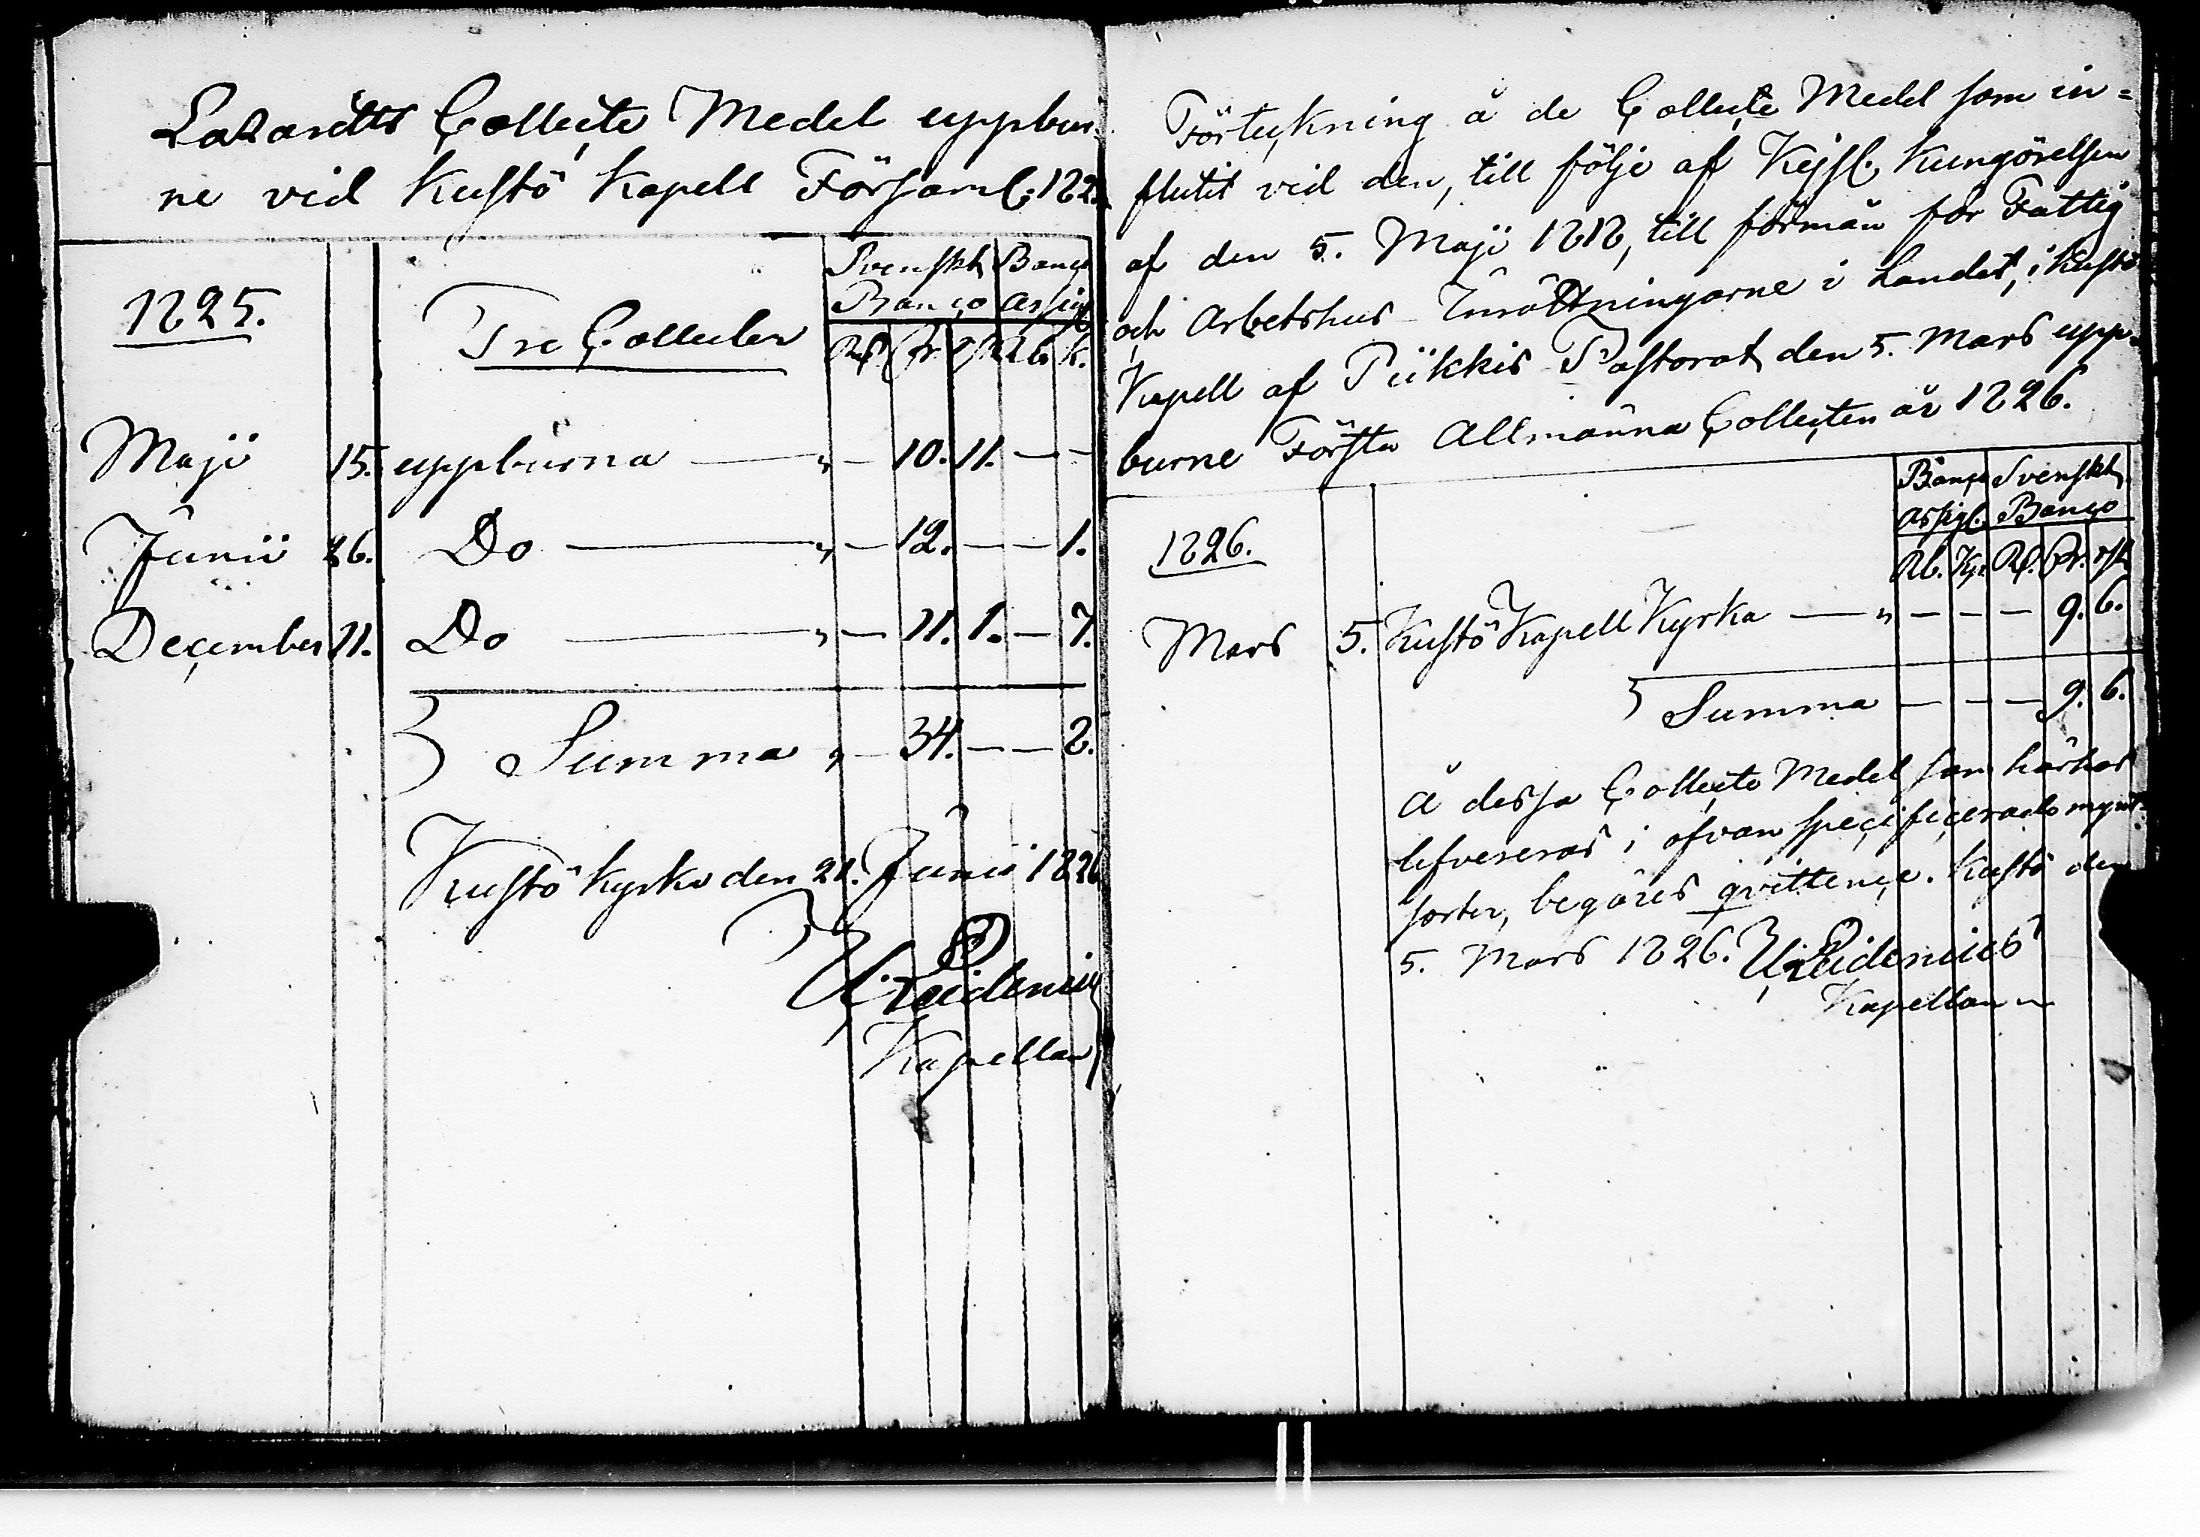 Lazaretts Collecte Medel uppbur-
ne vid Kustö Kapell Församl: 182
1825. Tre Collecter
Svenskt Banco Banco Assign.
Rd. sk. rst. Rb. k.
Maji 15. uppburna — „ — 10. 11. — —
Junii 26. Do — „ — 12. — — 1.
December 11. Do — „ — 11. 1. — 7.
Summa „ — 34. — — 8.
Kustö Kyrka den 21. Junii 1826
Kapellan
Förteckning å de Collecte Medel som in=
flutit vid den, till följe af Kejsl. Kungörelsen
af den 5. Maji 1818, till förmån for Fattig
och Arbetshus Inrättningarne i Landet, i Kustö
Kapell af Piikkis Pastorat den 5. Mars upp-
burne Första Allmänna Collecten år 1826.
Banco Assign. Svenskt Banco
1826. Rb. Kp. Rd. sk. rst.
Mars 5. Kustö Kapell Kyrka — „ — — — 9. 6.
Summa — — — 9. 6.
Å dessa Collecte Medel som härhos
lefvereras i ofvan specificerade mynt-
sorter, begäres qvittence. Kustö den
5. Mars 1826.
Kapellan